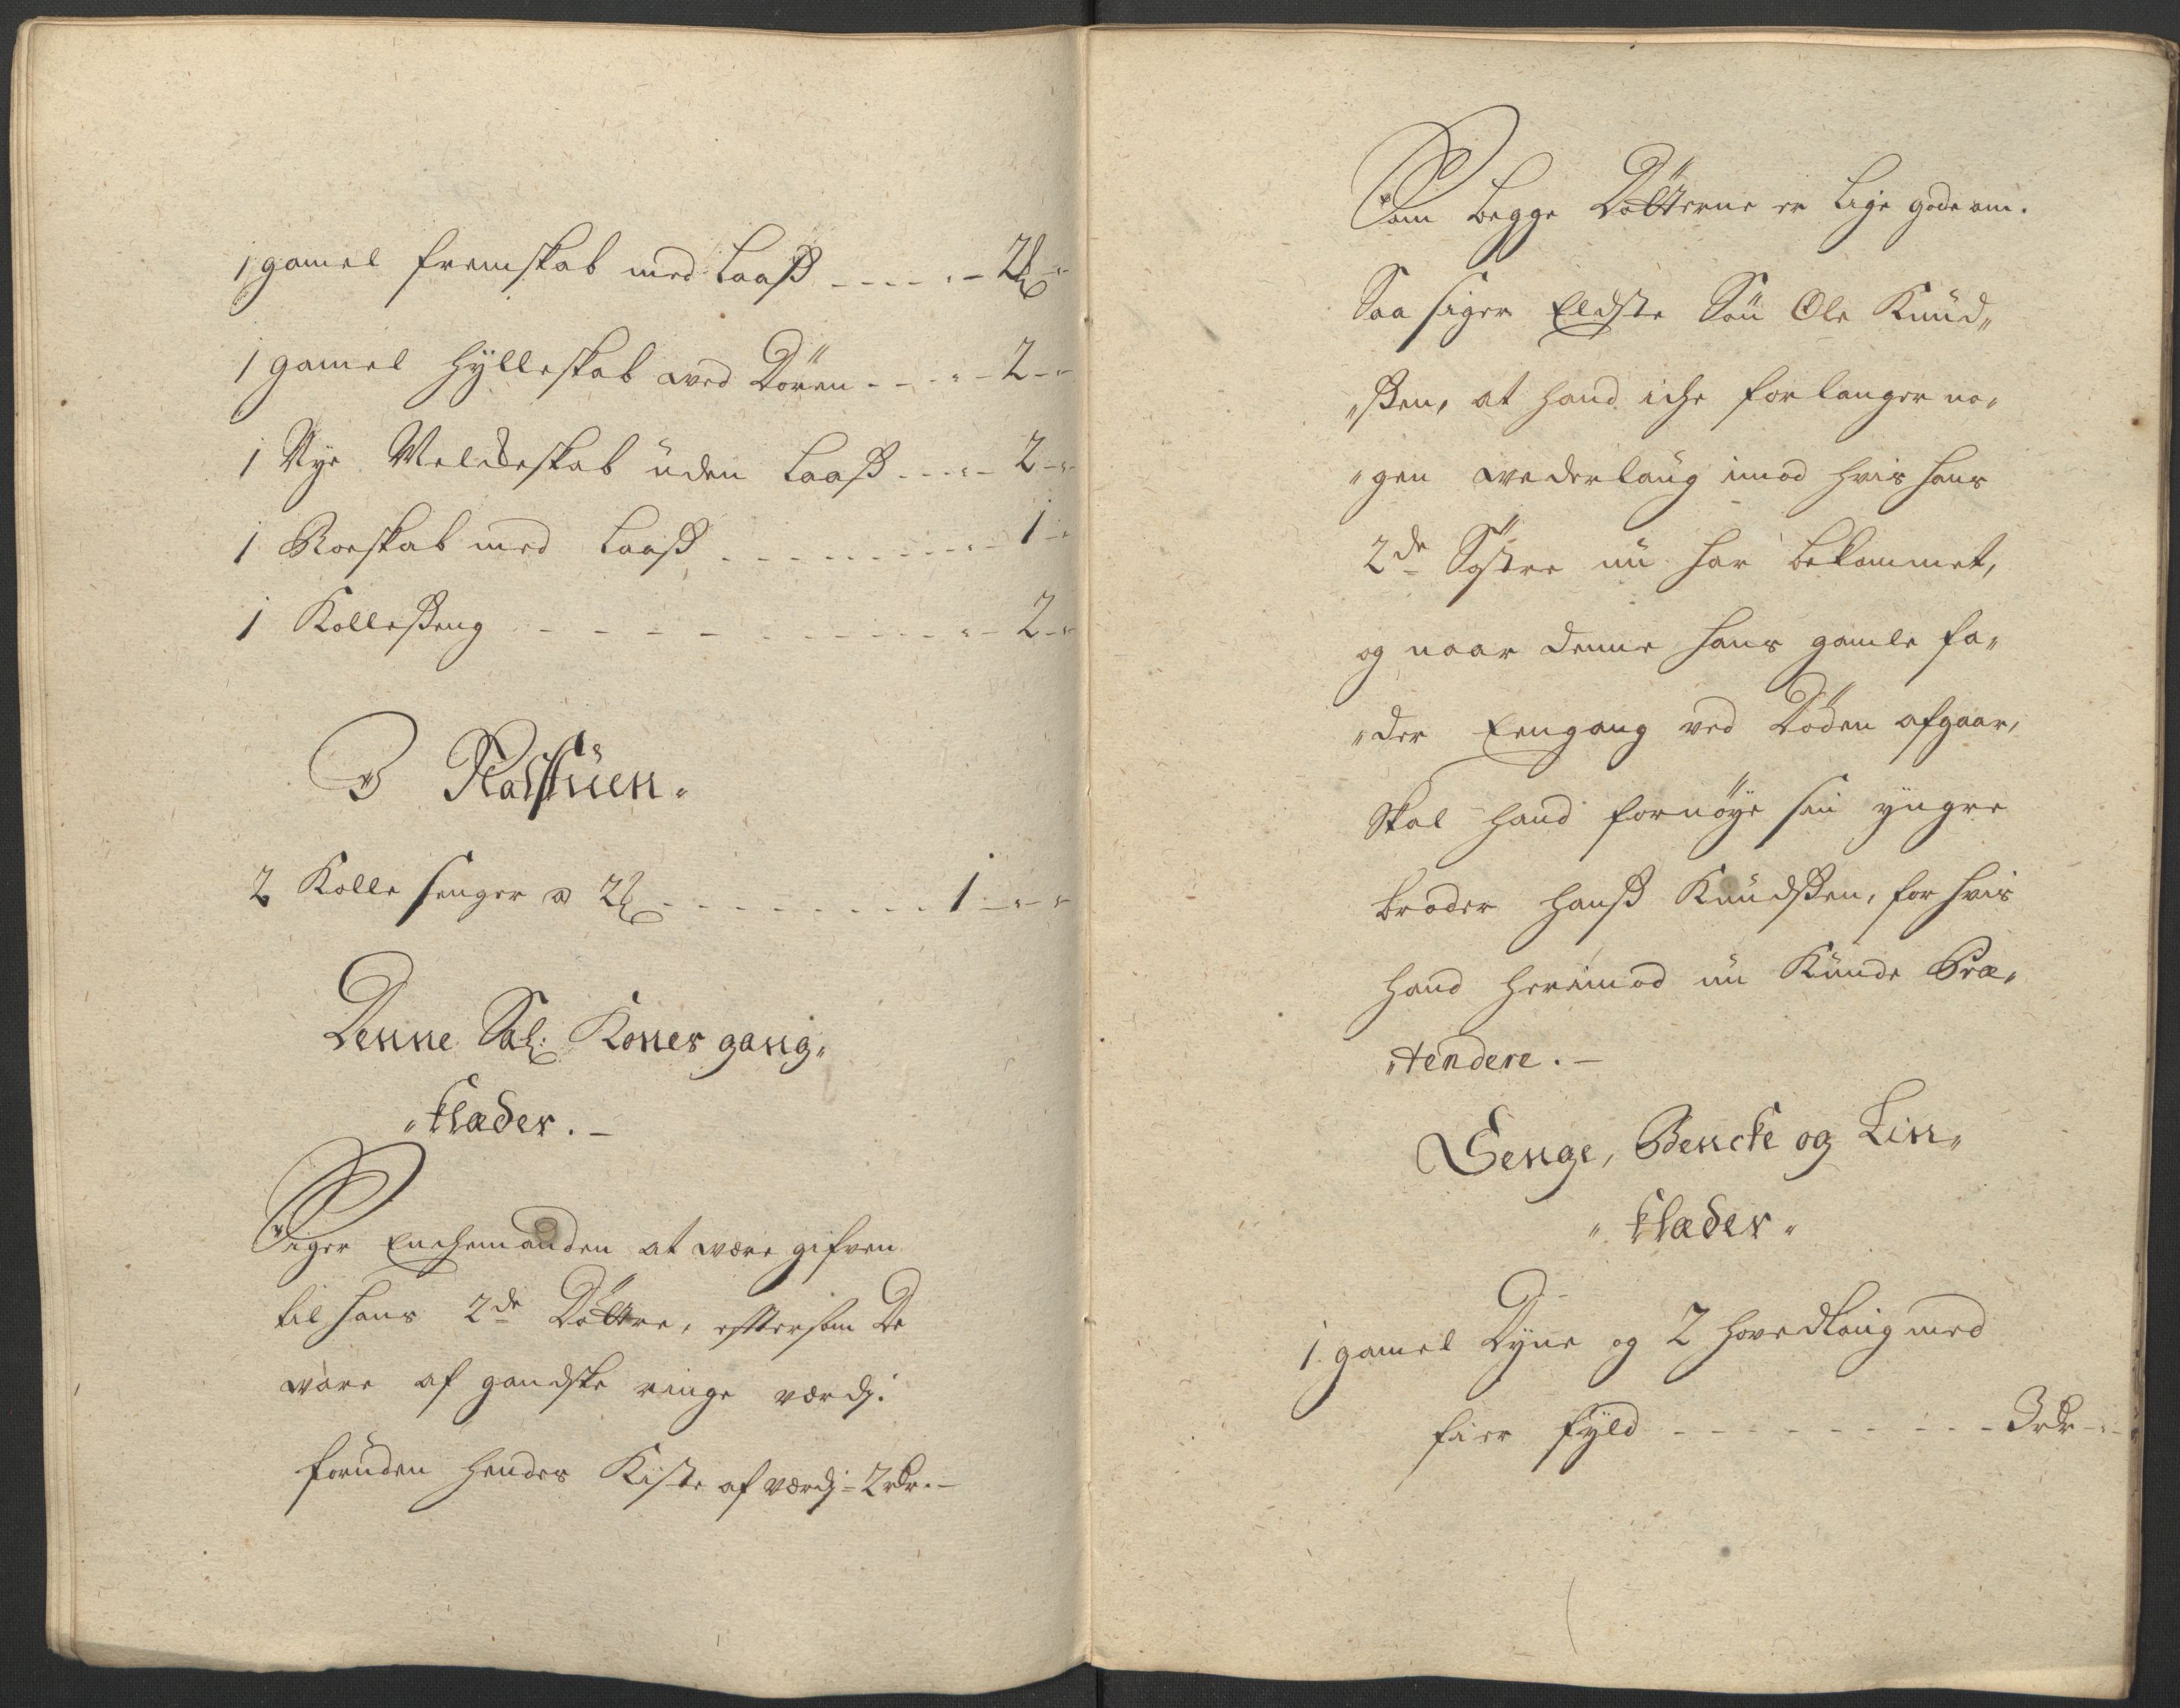 1 gamel fremskab med Laaß - - - - " - 2 -"-
1 gamel hÿlleskab ved Dören - - - " - 2 - "
1 Nÿe Melckeskab uden Laaß - - - " - 2 - "
1 Roeskab med Laaß - - - - - - - - " - 1 - "
1 Kollesseng - - - - - - - - - - " - 2 - "
I Raßtuen.
2 Kolle senger a 2 - - - - - - - - - 1 - " - "
Denne Sal: Kones gang„
„klæder. -
Siger Enchemanden at være gifven
til hans 2de Döttre, eftersom De
ware af gandske ringe værdj:
foruden hendes Kiste af værdj - 2 rdr. -
Som begge Dötterne er lige gode om.
Saa siger Eldste Sön Ole Knud„
„ßen, at hand iche forlanger no„
„gen wederlaug imod hvis hans
2de Söstre nu har bekommet,
og naar denne hans gamle fa„
„der Eengang ved Döden afgaar,
skal hand fornöye sin ÿngre
broder Hanß Knudßen, for hvis
hand herimod nu Kunde Præ„
„tendere. -
Senge, Bencke og Lin„
„klæder„
1 gamel Dÿne og 2 hovedlaug med
fier fÿld - - - - - - - - - 3 rdr - " -